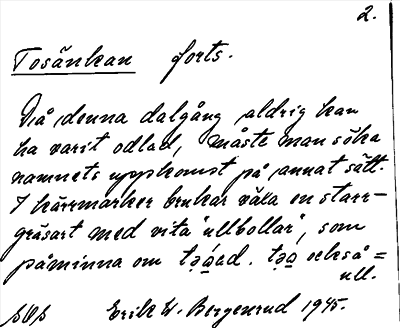 2.
Tosänkan forts.
Då denna dalgång aldrig kan
ha varit odlad, måste man söka
namnets uppkomst på annat sätt.
I kärrmarker brukar växa en starr-
gräsart med vita "ullbollar", som
påminna om
också =
ull.
Erik W. Bergenrud 1945.